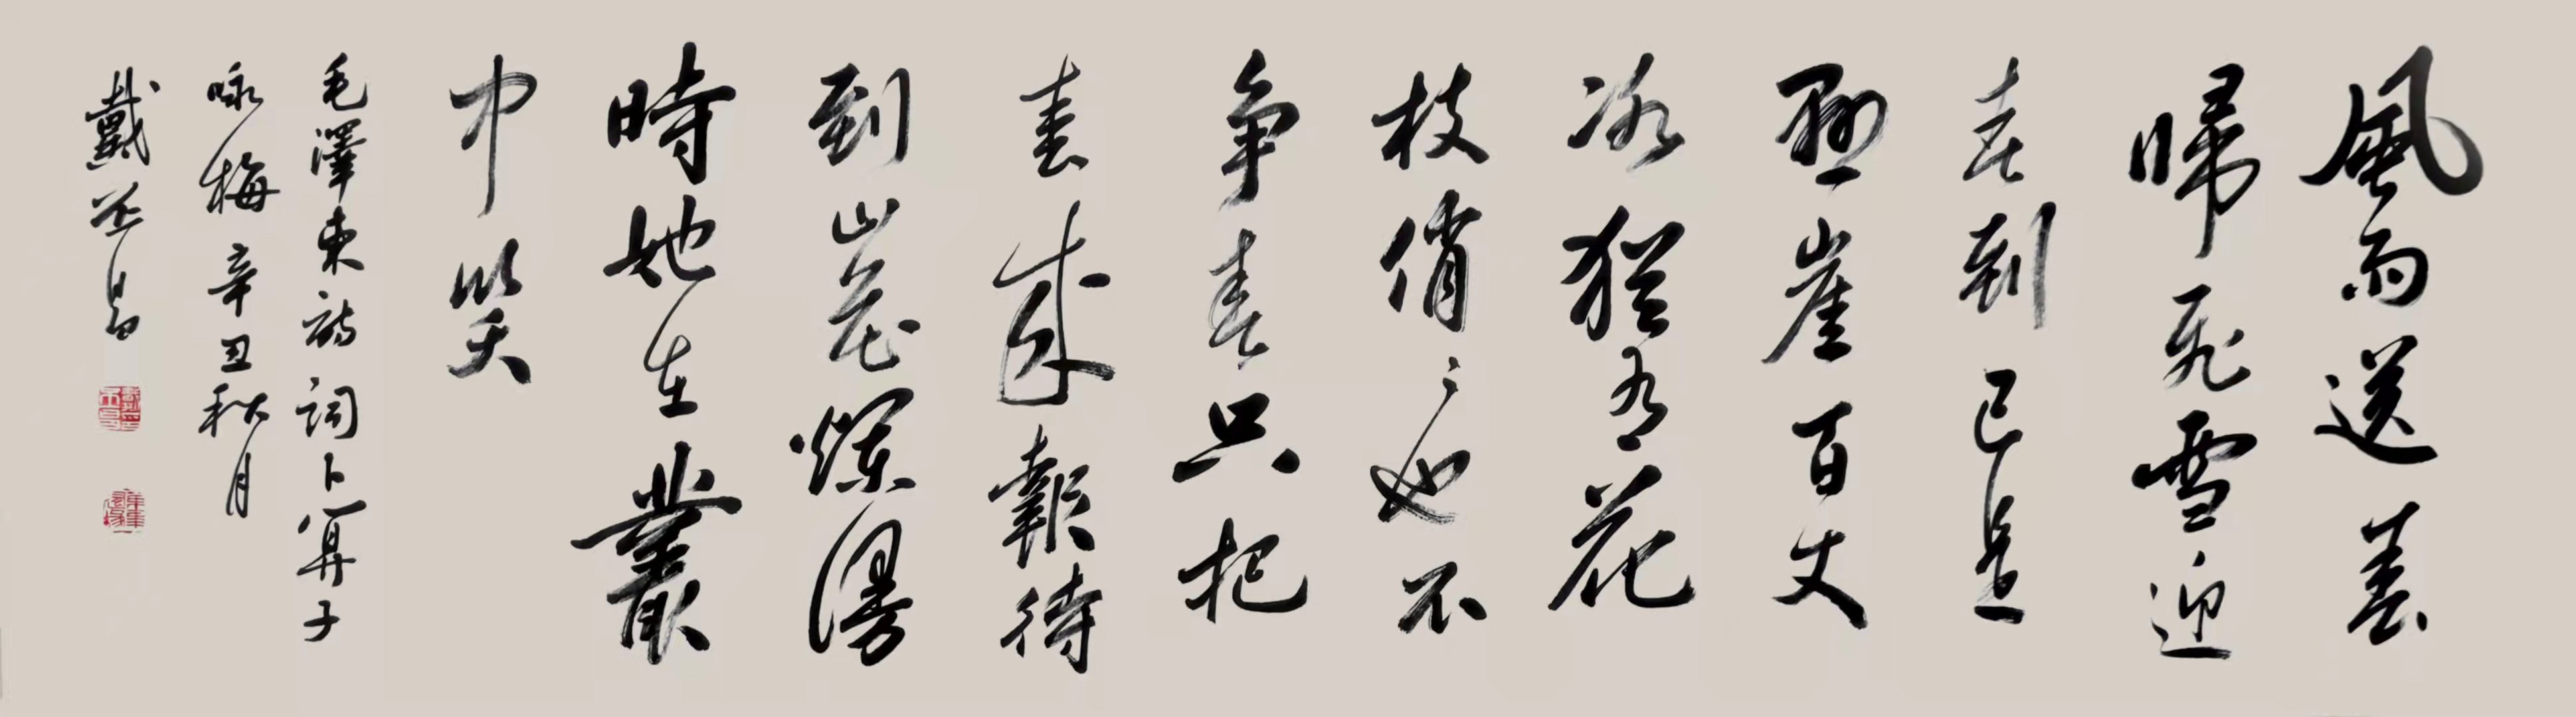 風雨送春
歸飛雪迎
春到已是
懸崖百丈
冰猶有花
枝俏々也不
争春只把
春來報待
到山花爛漫
時她在叢
中笑
毛澤東詩詞卜算子
咏梅 辛丑秋月
戴丕昌